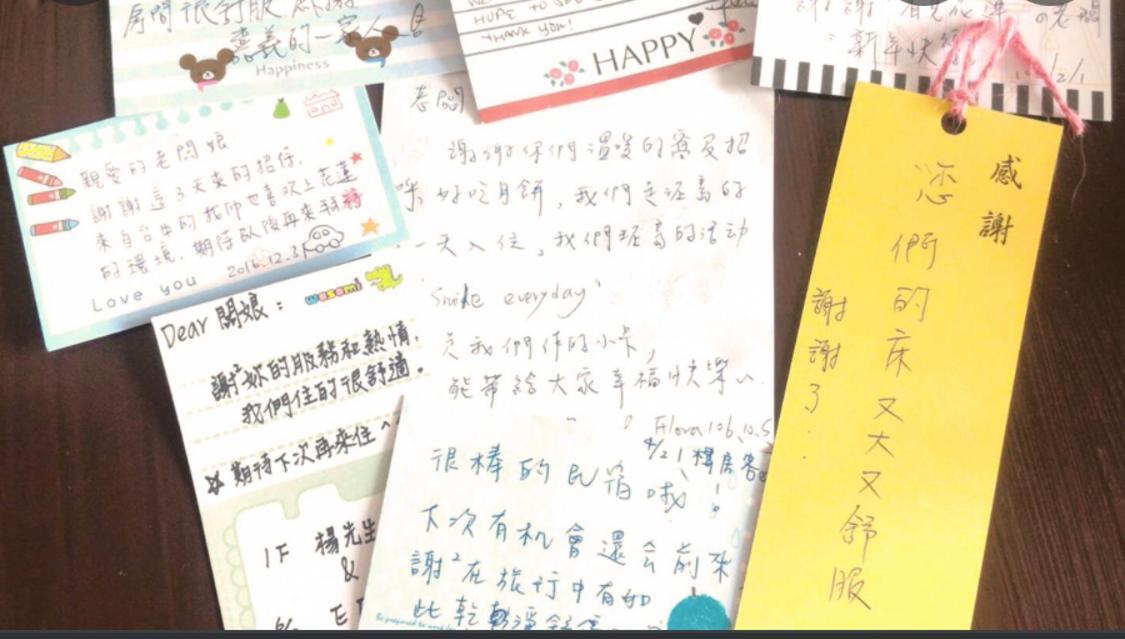 房間很舒服
嘉義的一家人
Happiness
HOPE TO SEE
THANK YOU!
HAPPY
新年快
親愛的老闆娘
謝謝這3天來的招待,
來自台中的 也喜歡上花蓮
的環境,期待以後再來
2016.12.31
Love you
Dear 闆娘:
wasami
謝²妳的服務和熱情,
我們住的很舒適。
期待下次再來住^^
1F 楊先生
&
老闆
謝謝你們溫暖的 招
好吃月餅,我們是 的
一天入住,我們 的活動
"Smile everyday"
我們作的小卡,
能帶給大家幸福快樂^^
Flora 106.10.5
4/21 樓房客
很棒的民宿哦!
下次有机會還会前來
謝²在旅行中有如
此乾
感謝
您們的床又大又舒服
謝謝了